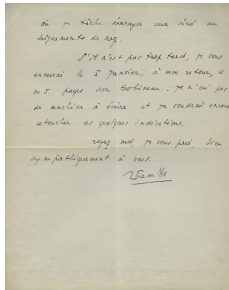 où je tâche d'enrayer une série de
saignements de nez.
S'il n'est pas trop tard, je vous
enverrai le 5 janvier, à mon retour, le
ou 5 pages sur Gobineau : je n'ai pas
de machine à écrire et je voudrais encore
retoucher ces quelques indications.
Croyez moi, je vous prie, bien
sympathiquement à vous.